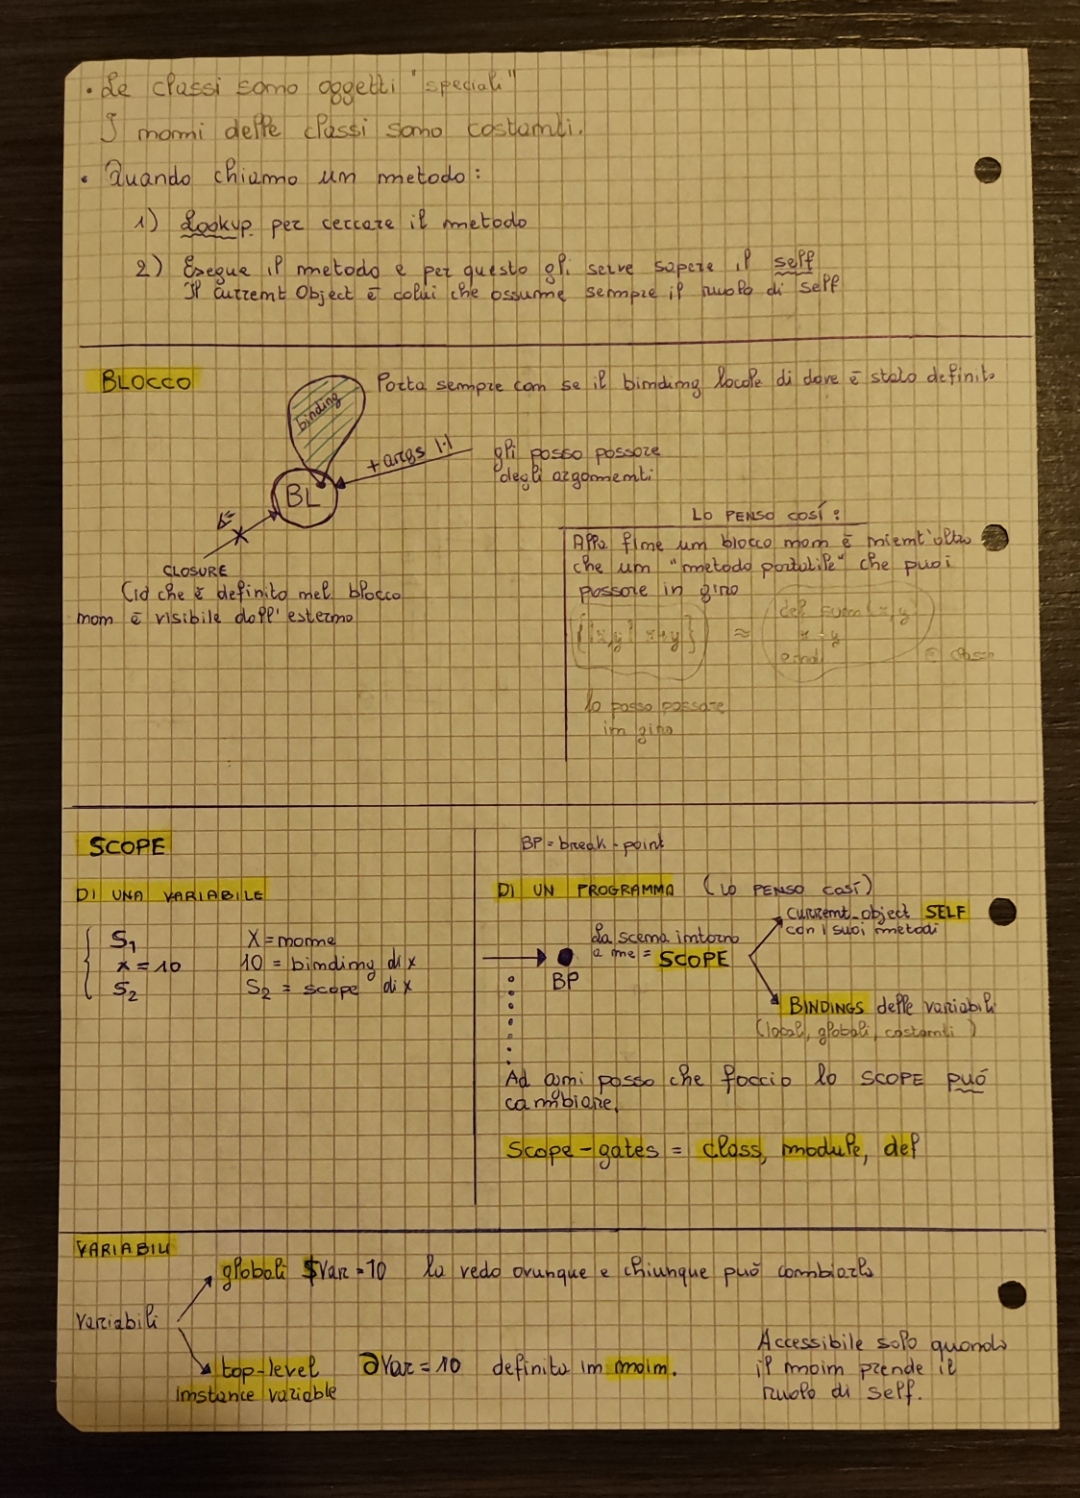 • Le classi sono oggetti "speciali"
I nomi delle classi sono costanti.
• Quando chiamo un metodo:
1) Lookup per cercare il metodo
2) Esegue il metodo e per questo gli serve sapere il self
Il current Object è colui che assume sempre il ruolo di self
BLOCCO
Porta sempre con se il binding locale di dove è stato definito
binding
+ args |·|
gli posso passare
degli argomenti
BL
CLOSURE
Ciò che è definito nel blocco
non è visibile dall'esterno
LO PENSO COSÍ:
Alla fine un blocco non è nient'altro
che un "metodo portatile" che puoi
passare in giro
{ |x,y| x+y } ≈
def sum(x,y)
x+y
end
lo posso passare
in giro
SCOPE
DI UNA VARIABILE
S1 X = nome
x = 10 10 = binding di x
S2 S2 = scope di x
BP = break-point
DI UN PROGRAMMA (LO PENSO COSÍ)
current_object SELF
con i suoi metodi
La scena intorno
a me = SCOPE
BP
BINDINGS delle variabili
(locali, globali, costanti)
Ad ogni passo che faccio lo SCOPE può
cambiare.
Scope-gates = class, module, def
VARIABILI
globali $var = 10 la vedo ovunque e chiunque può cambiarla
Variabili
top-level @var = 10 definita in main.
instance variable
Accessibile solo quando
il main prende il
ruolo di self.